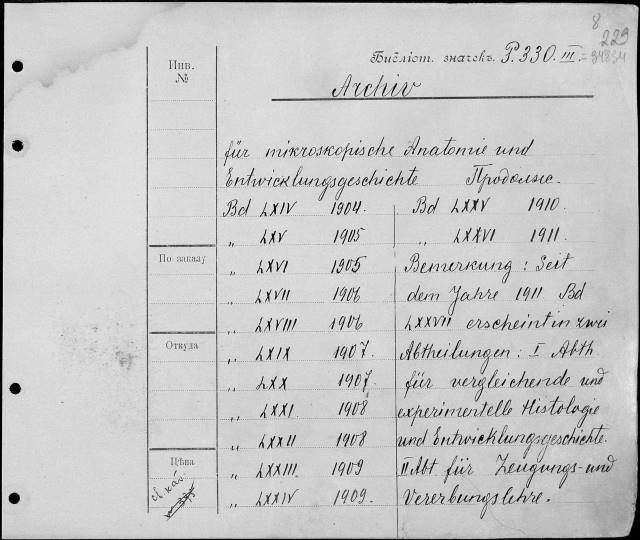 8
223
Инв.
№
Библіот. значекъ. P.330. III.
=34834
Archiv
für mikroskopische Anatomie und
Entwicklungsgeschichte Продолж.
Bd LXIV 1904. Bd LXXV 1910.
„ LXV 1905 „ LXXVI 1911.
По заказу
„ LXVI 1905 Bemerkung: Seit
„ LXVII 1906 dem Jahre 1911 Bd
„ LXVIII 1906 LXXVII erscheint in zwei
Откуда
„ LXIX 1907. Abtheilungen: I Abth
„ LXX 1907. für vergleichende und
„ LXXI 1908 experimentelle Histologie
„ LXXII 1908 und Entwicklungsgeschichte.
Цѣна
„ LXXIII 1909 II Abt für Zeugungs- und
„ LXXIV 1909. Vererbungslehre.